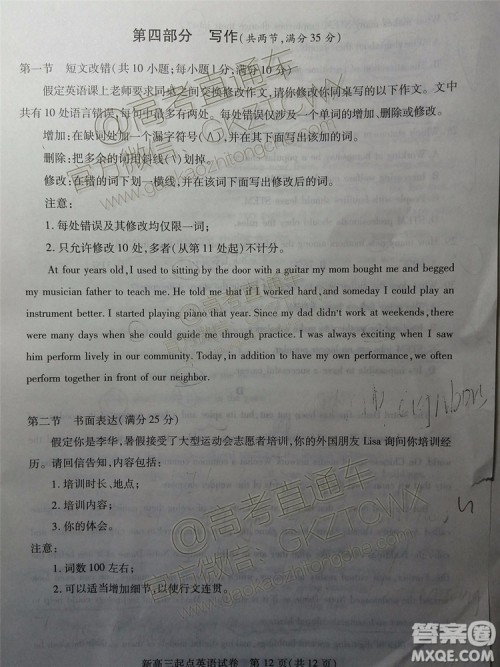 第四部分 写作(共两节,满分35分)
第一节 短文改错(共10小题;每小题1分,满分10分)
假定英语课上老师要求同桌之间交换修改作文,请你修改你同桌写的以下作文。文中
共有10处语言错误,每句中最多有两处。每处错误仅涉及一个单词的增加、删除或修改。
增加:在缺词处加一个漏字符号(∧),并在其下面写出该加的词。
删除:把多余的词用斜线(\)划掉。
修改:在错的词下划一横线,并在该词下面写出修改后的词。
注意:
1. 每处错误及其修改均仅限一词;
2. 只允许修改10处,多者(从第11处起)不计分。
At four years old, I used to sitting by the door with a guitar my mom bought me and begged
my musician father to teach me. He told me that if I worked hard, and someday I could play an
instrument better. I started playing piano that year. Since my dad didn't work at weekends, there
were many days when she could guide me through practice. I was always exciting when I saw
him perform lively in our community. Today, in addition to have my own performance, we often
perform together in front of our neighbor.
第二节 书面表达(满分25分)
假定你是李华,暑假接受了大型运动会志愿者培训,你的外国朋友Lisa询问你培训经
历。请回信告知,内容包括:
1. 培训时长、地点;
2. 培训内容;
3. 你的体会。
注意:
1. 词数100左右;
2. 可以适当增加细节,以使行文连贯。
新高三起点英语试卷 第12页(共12页)
@高考直通车
官方微信:GKZTCWX
@高考直通车
官方微信:GKZTCWX
答案圈
MXQE.COM